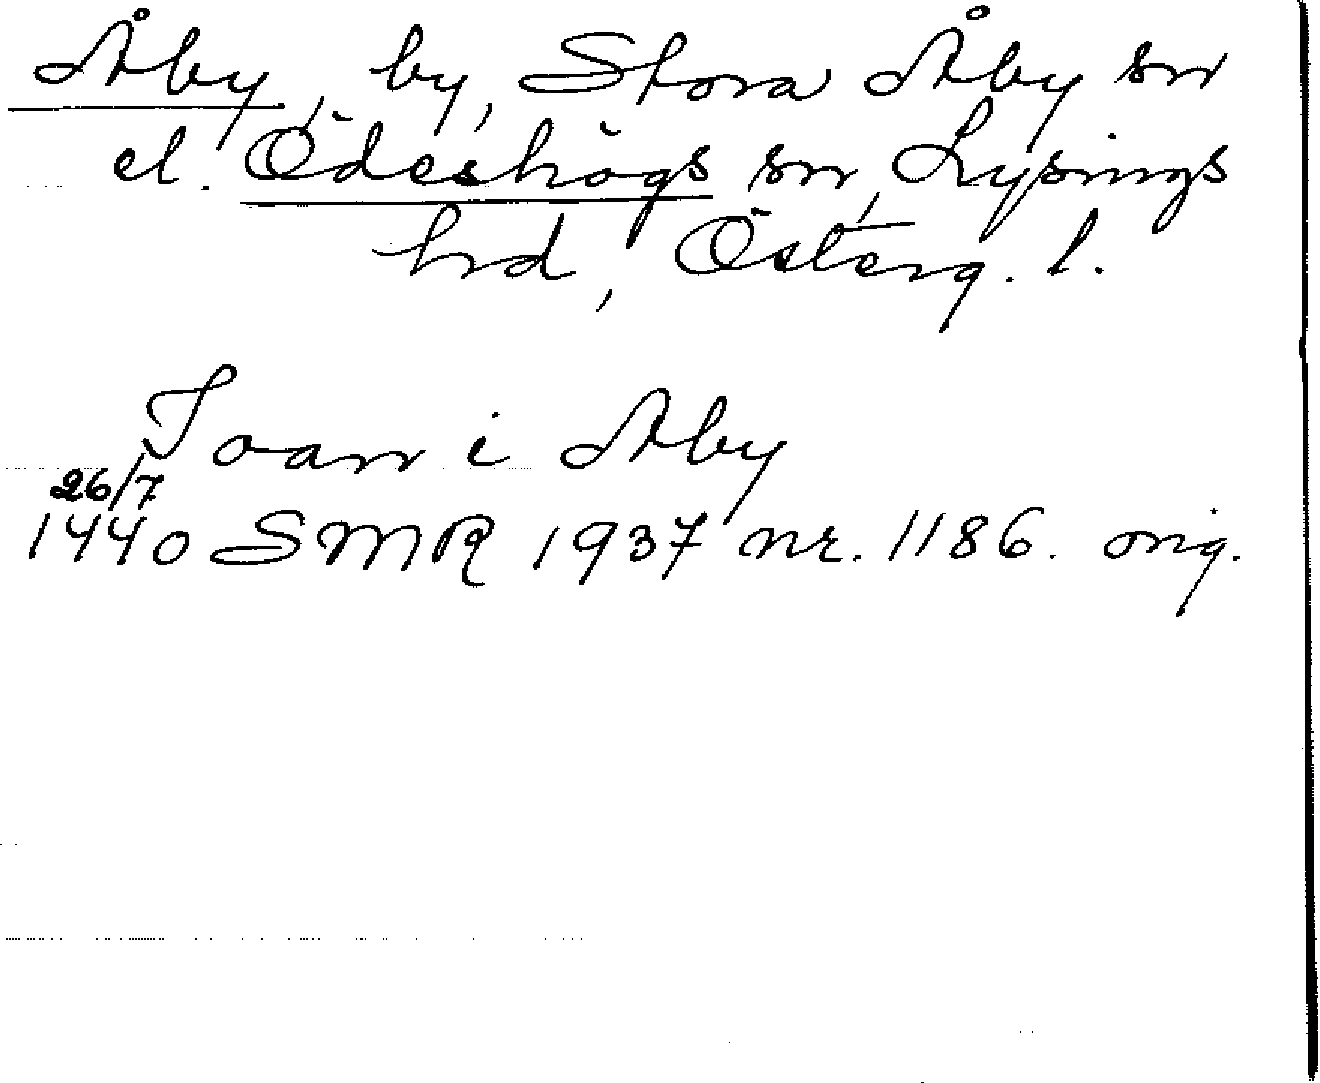 Åby, by, Stora Åby sn
el. Ödeshögs sn, Lysings
hrd, Österg. l.
Joan i Aby
26/7
1440 SMR 1937 nr. 1186. orig.